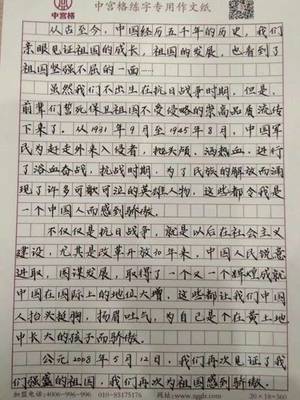 中宫格练字专用作文纸
中宫格
从古至今，中国经历五千年的历史，我们
亲眼见证祖国的成长，祖国的发展，也看到了
祖国坚强不屈的一面……
虽然我们不出生在抗日战争时期，但是，
前辈们誓死保卫祖国不受侵略的崇高品质流传
下来了。从1931年9月至1945年8月，中国军
民为赶走外来入侵者，抛头颅，洒热血，进行
了浴血奋战，抗战时期，为了民族的解放而涌
现了许多可歌可泣的英雄人物，这些都令我是
一个中国人而感到骄傲。
不仅仅是抗日战争，就是以后在社会主义
建设，尤其是改革开放30年来，中国人民锐意
进取，图谋发展，取得了一个又一个辉煌成就
中国在国际上的地位大增，这些都让我们中国
人抬头挺胸，扬眉吐气，为自己是个在黄土地
中长大的孩子而骄傲。
公元2008年5月12日，我们再次见证了我
们强盛的祖国，我们再次为祖国感到骄傲。
加盟电话:4006-996-996 010-83475176 20×18=360